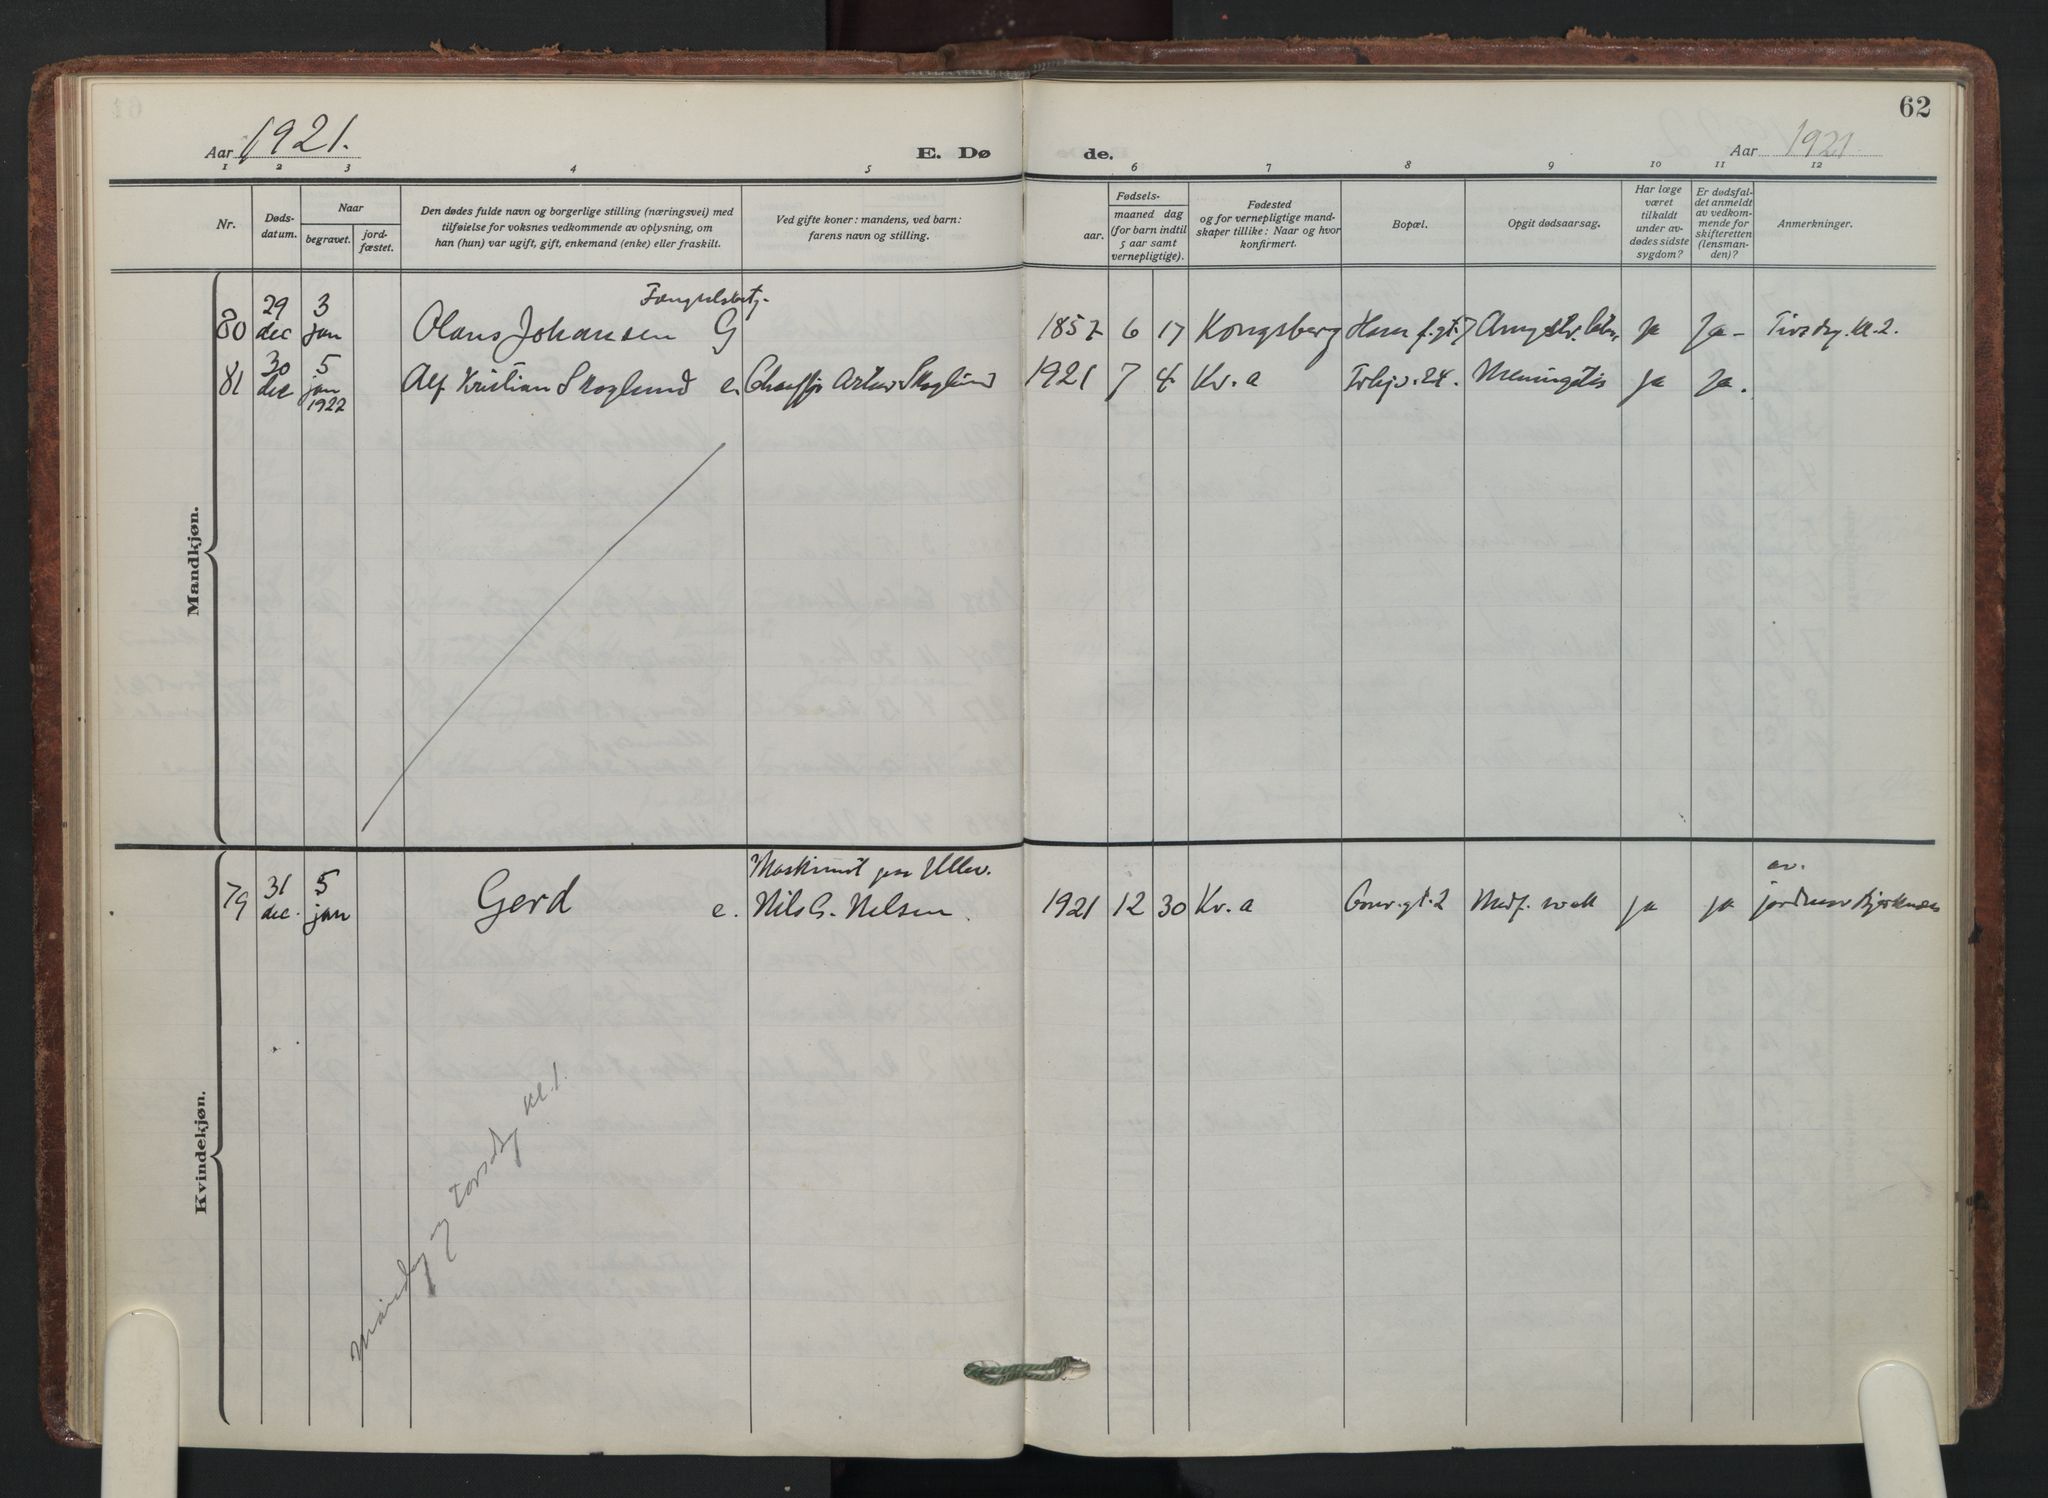 62
Aar 1921.
E. Dø de.
Aar 1921.
1 2 3 4 5 6 7 8 9 10 11 12
Nr.
Døds-
datum.
Naar
begravet.
jord-
fæstet.
Den dødes fulde navn og borgerlige stilling (næringsvei) med
tilføielse for voksnes vedkommende av oplysning, om
han (hun) var ugift, gift, enkemand (enke) eller fraskilt.
Ved gifte koner: mandens, ved barn:
farens navn og stilling.
Fødsels-
aar.
maaned dag
(for barn indtil
5 aar samt
vernepligtige).
Fødested
og for vernepligtige mand-
skaper tillike: Naar og hvor
konfirmert.
Bopæl.
Opgit dødsaarsag.
Har læge
været
tilkaldt
under av-
dødes sidste
sygdom?
Er dødsfal-
det anmeldt
av vedkom-
mende for
skifteretten
(lensman-
den)?
Anmerkninger.
Mandkjøn.
29 3
80 dec jan Olaus Johansen G 1857 6 17 Kongsberg ja Ja - Tirsdag kl. 2.
30 5
81 dec jan Alf Kristian Skoglund e. Chauffør Artur Skoglund 1921 7 4 Kr.a 24. Meningitis ja Ja.
1922
Kvindekjøn.
31 5 Maskinist paa Ullev. av.
79 dec. jan Gerd e. Nils G. Nelsen. 1921 12 30 Kr.a 2 Medf. svak ja ja jordmor Bjerknæs
Mandag og torsdag kl. 1.